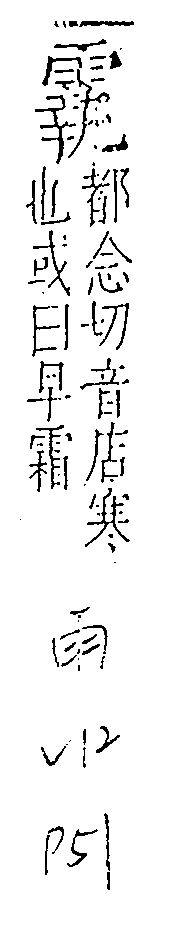 都念切音店寒
也或曰早霜
雨
V12
P51